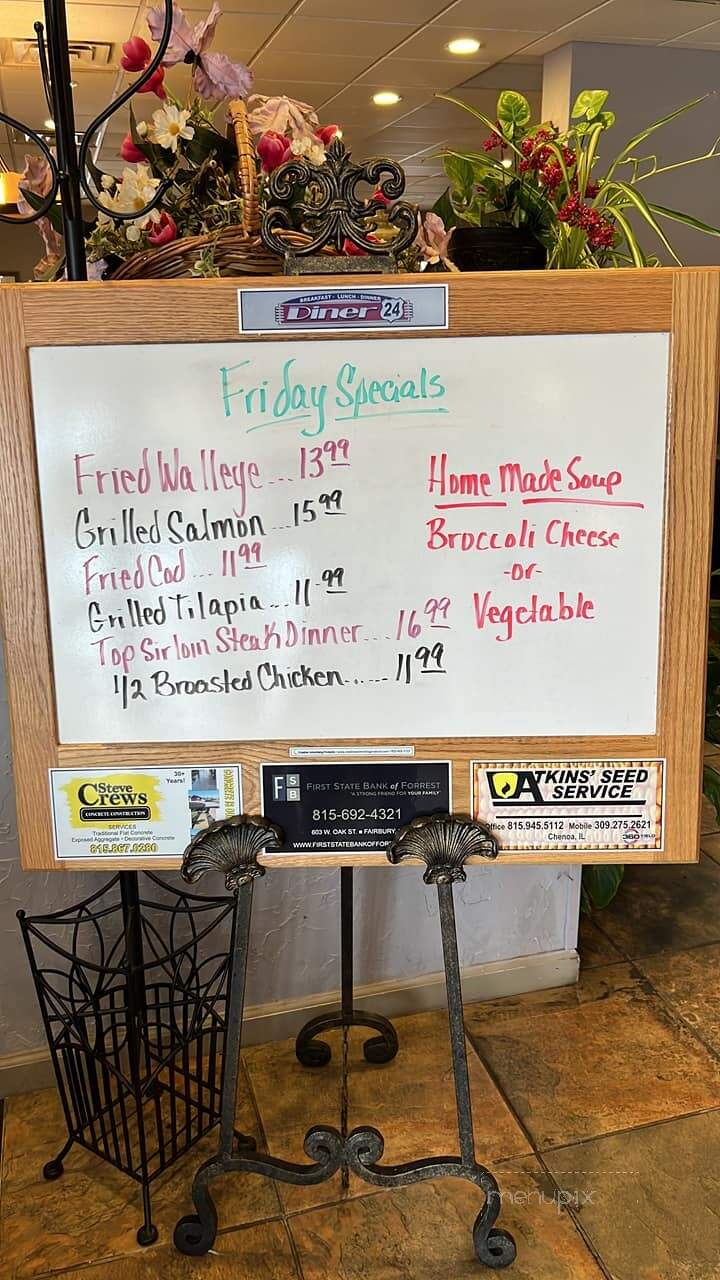 BREAKFAST · LUNCH · DINNER
Diner 24
Friday Specials
Fried Walleye... 13 99
Grilled Salmon ... 15 99
Fried Cod ... 11 99
Grilled Tilapia... 11.99
Top Sirloin Steak Dinner.... 16 99
1/2 Broasted Chicken...... 11 99
Home Made Soup
Broccoli Cheese
-or-
Vegetable
30+
Years!
Steve
Crews
CONCRETE CONSTRUCTION
SERVICES
Traditional Flat Concrete
Exposed Aggregate • Decorative Concrete
815.867.0280
F S B
FIRST STATE BANK of FORREST
"A STRONG FRIEND FOR YOUR FAMILY"
815-692-4321
603 W. OAK ST. ■ FAIRBURY
WWW.FIRSTSTATEBANKOFFOR
ATKINS' SEED
SERVICE
Office 815.945.5112 Mobile 309.275.2621
Chenoa, IL
360 YIELD
menupix